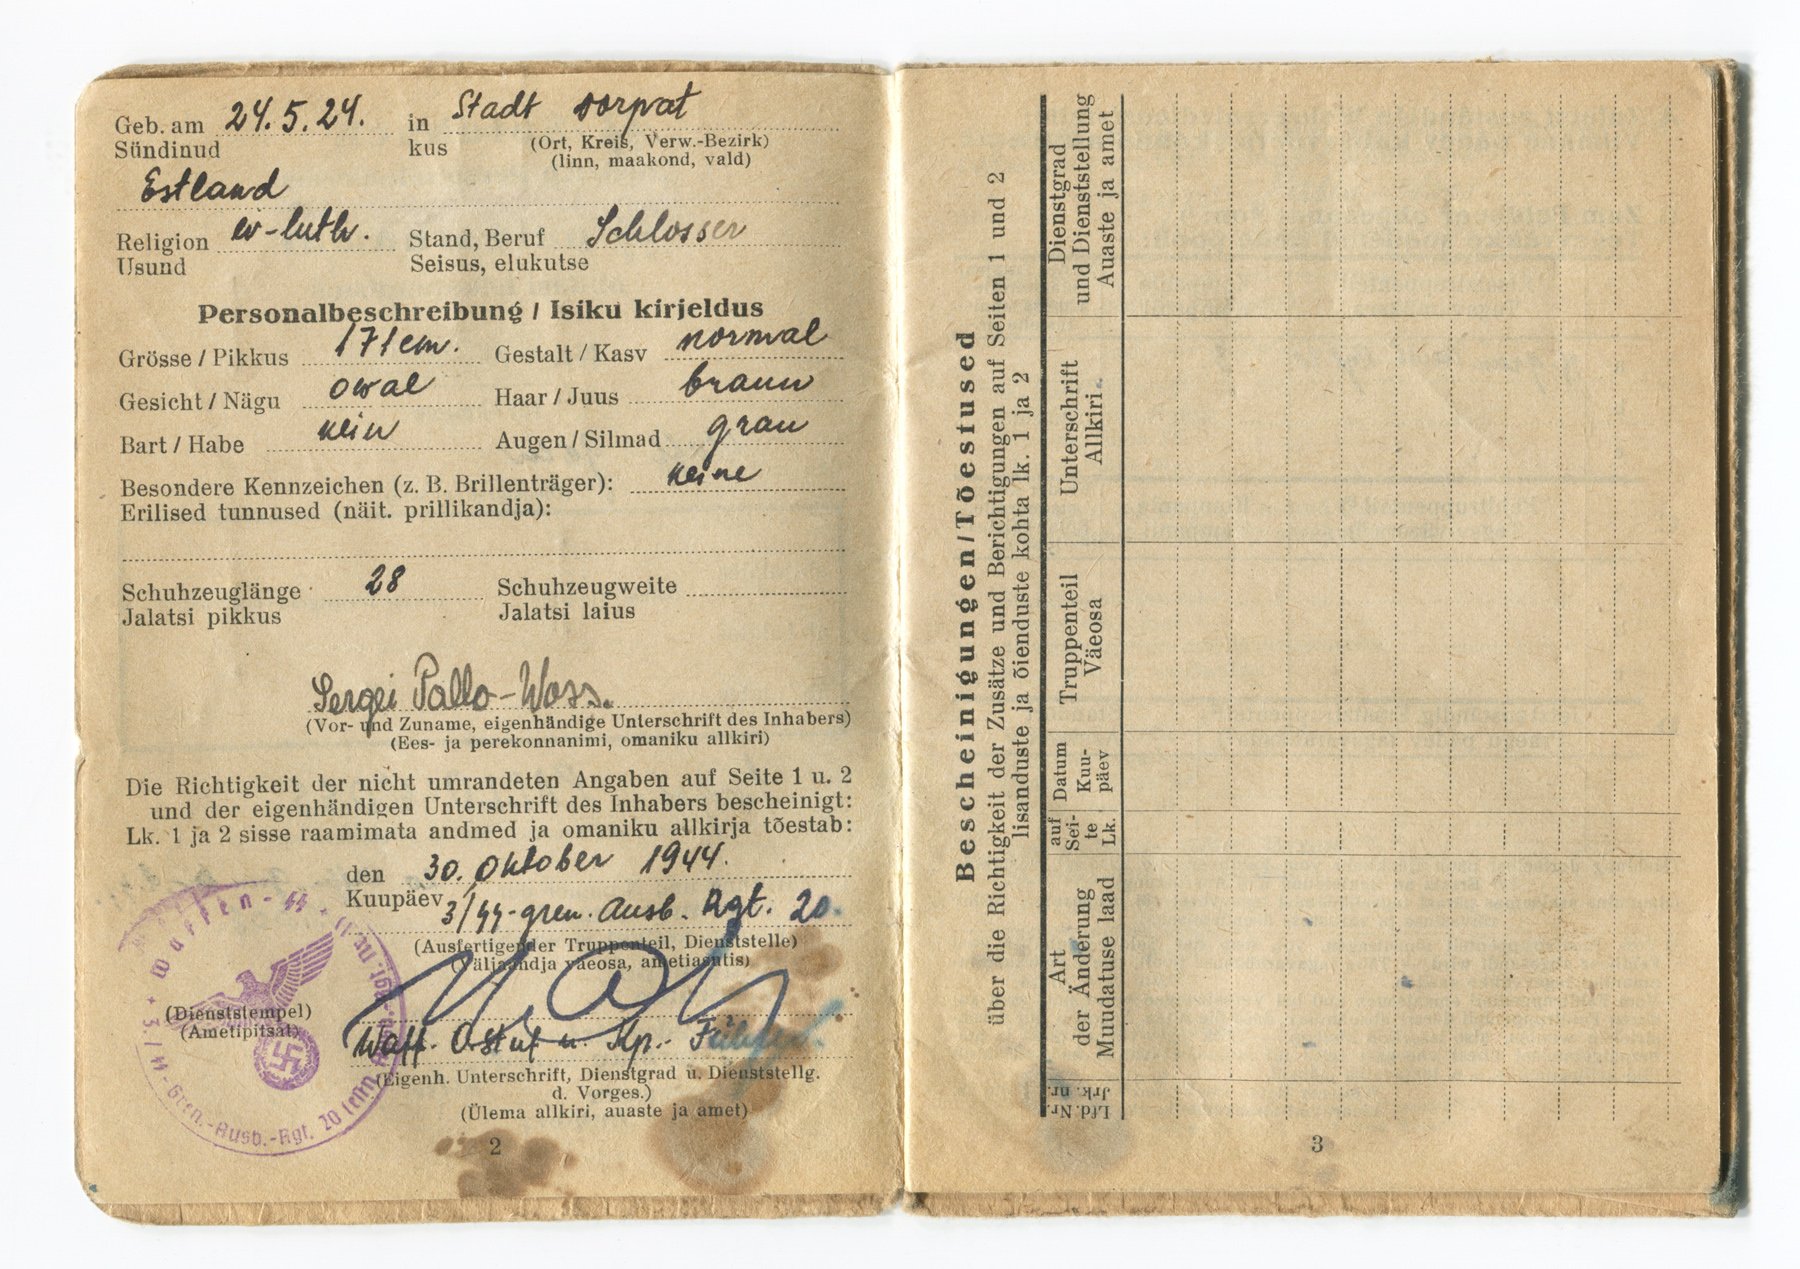 Geb. am 24.5.24. in Stadt Dorpat
Sündinud kus (Ort, Kreis, Verw.-Bezirk)
(linn, maakond, vald)
Estland
Religion ev-luth. Stand, Beruf Schlosser
Usund Seisus, elukutse
Personalbeschreibung / Isiku kirjeldus
Grösse / Pikkus 171 cm. Gestalt / Kasv normal
Gesicht / Nägu owal Haar / Juus braun
Bart / Habe kein Augen / Silmad grau
Besondere Kennzeichen (z. B. Brillenträger): keine
Erilised tunnused (näit. prillikandja):
Schuhzeuglänge 28 Schuhzeugweite
Jalatsi pikkus Jalatsi laius
Sergei Pallo-Woss.
(Vor- und Zuname, eigenhändige Unterschrift des Inhabers)
(Ees- ja perekonnanimi, omaniku allkiri)
Die Richtigkeit der nicht umrandeten Angaben auf Seite 1 u. 2
und der eigenhändigen Unterschrift des Inhabers bescheinigt:
Lk. 1 ja 2 sisse raamimata andmed ja omaniku allkirja tõestab:
den 30. Oktober 1944.
Kuupäev
3/SS-Gren. Ausb. Rgt. 20.
(Ausfertigender Truppenteil, Dienststelle)
(Väljaandja väeosa, ametiasutis)
Waffen-SS
3/SS-Gren.-Ausb.-Rgt. 20
(Dienststempel)
(Ametipitsat)
Waff. Ostuf u. Kp. Führer.
(Eigenh. Unterschrift, Dienstgrad u. Dienststellg.
d. Vorges.)
(Ülema allkiri, auaste ja amet)
2
Bescheinigungen/Tõestused
über die Richtigkeit der Zusätze und Berichtigungen auf Seiten 1 und 2
lisanduste ja õienduste kohta lk. 1 ja 2
Lfd. Nr.
Jrk. nr.
Art
der Änderung
Muudatuse laad
auf
Sei-
te
Lk.
Datum
Kuu-
päev
Truppenteil
Väeosa
Unterschrift
Allkiri
Dienstgrad
und Dienststellung
Auaste ja amet
3